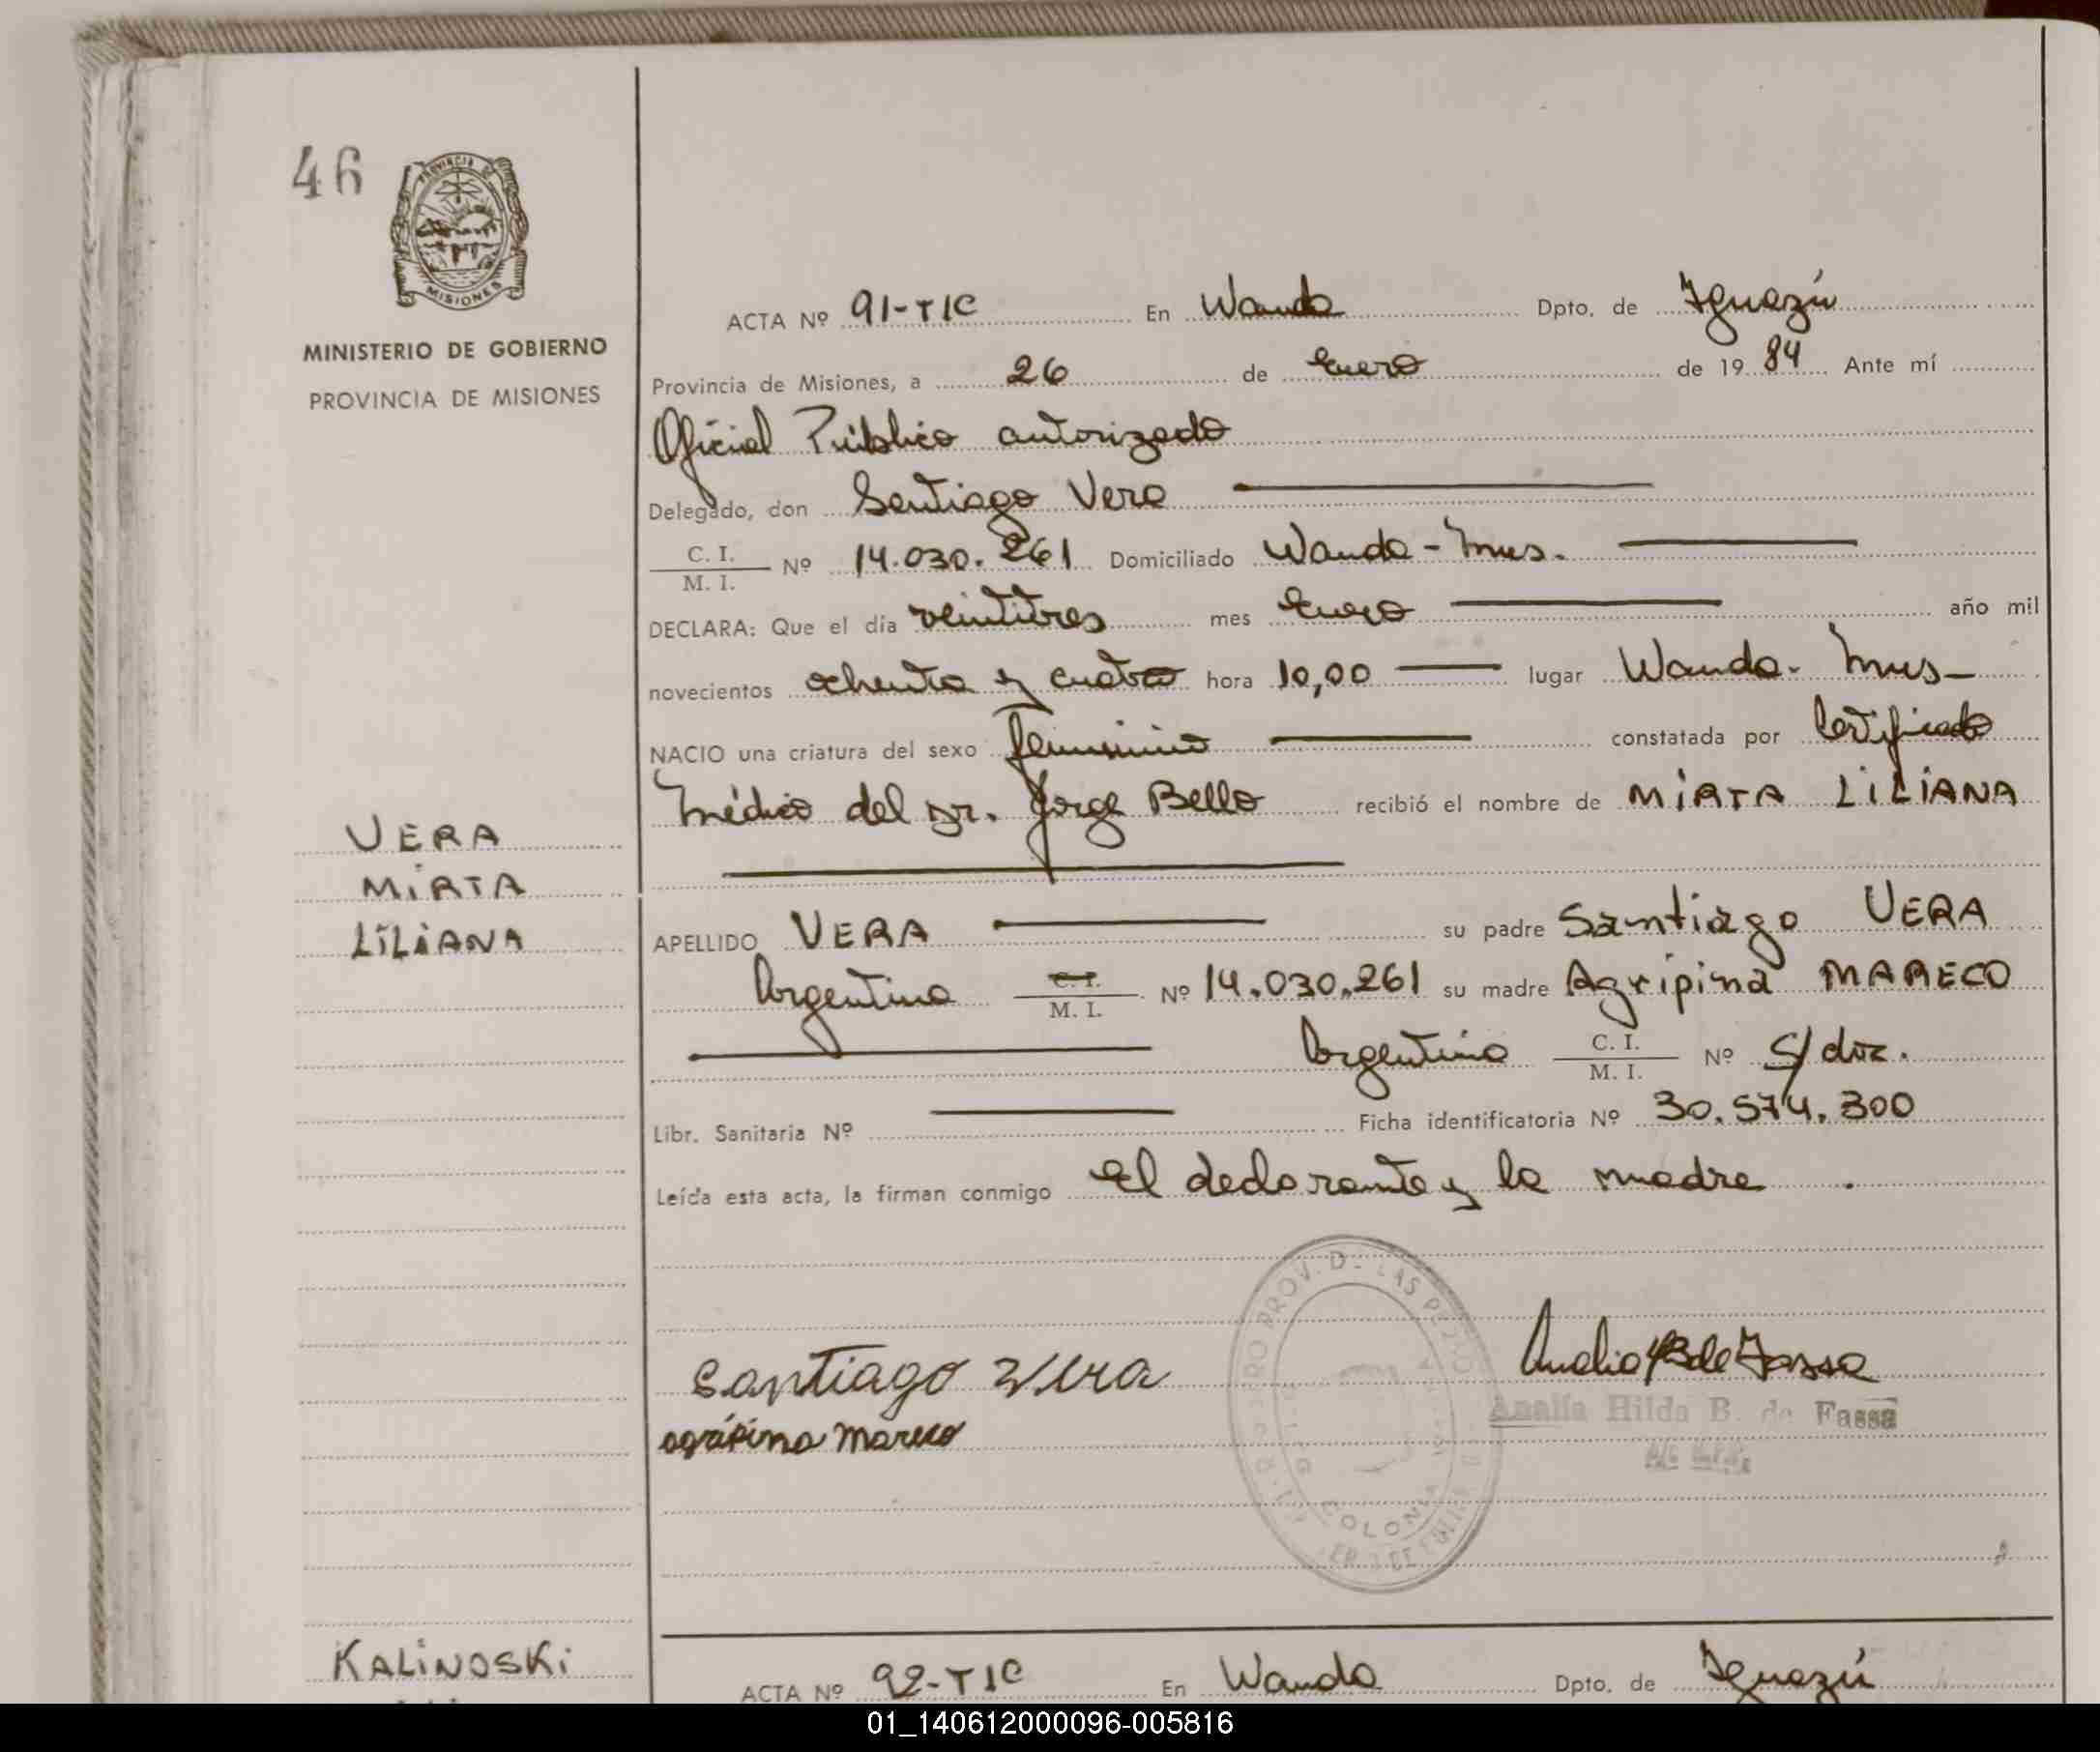 46
PROVINCIA DE
MISIONES
MINISTERIO DE GOBIERNO
PROVINCIA DE MISIONES
VERA
MIRTA
LILIANA
ACTA Nº 91-T1C En Wanda Dpto. de Iguazú
Provincia de Misiones, a 26 de Enero de 1984 Ante mí
Oficial Público autorizado
Delegado, don Santiago Vera
C. I. / M. I. Nº 14.030.261 Domiciliado Wanda - Mnes.
DECLARA: Que el día veintitres mes Enero año mil
novecientos ochenta y cuatro hora 10,00 lugar Wanda - Mnes
NACIO una criatura del sexo femenino constatada por Certificado
Médico del Dr. Jorge Bello recibió el nombre de MIRTA LILIANA
APELLIDO VERA su padre Santiago VERA
Argentino C. I. / M. I. Nº 14.030.261 su madre Agripina MARECO
Argentina C. I. / M. I. Nº S/doc.
Libr. Sanitaria Nº Ficha identificatoria Nº 30.574.300
Leída esta acta, la firman conmigo el declarante y la madre.
Santiago Vera
agripina mareco
PROV. DE LAS PE
COLONIA
Analia H B de Fassa
Analía Hilda B. de Fassa
KALINOSKI
ACTA Nº 92-T1C En Wanda Dpto. de Iguazú
01_140612000096-005816